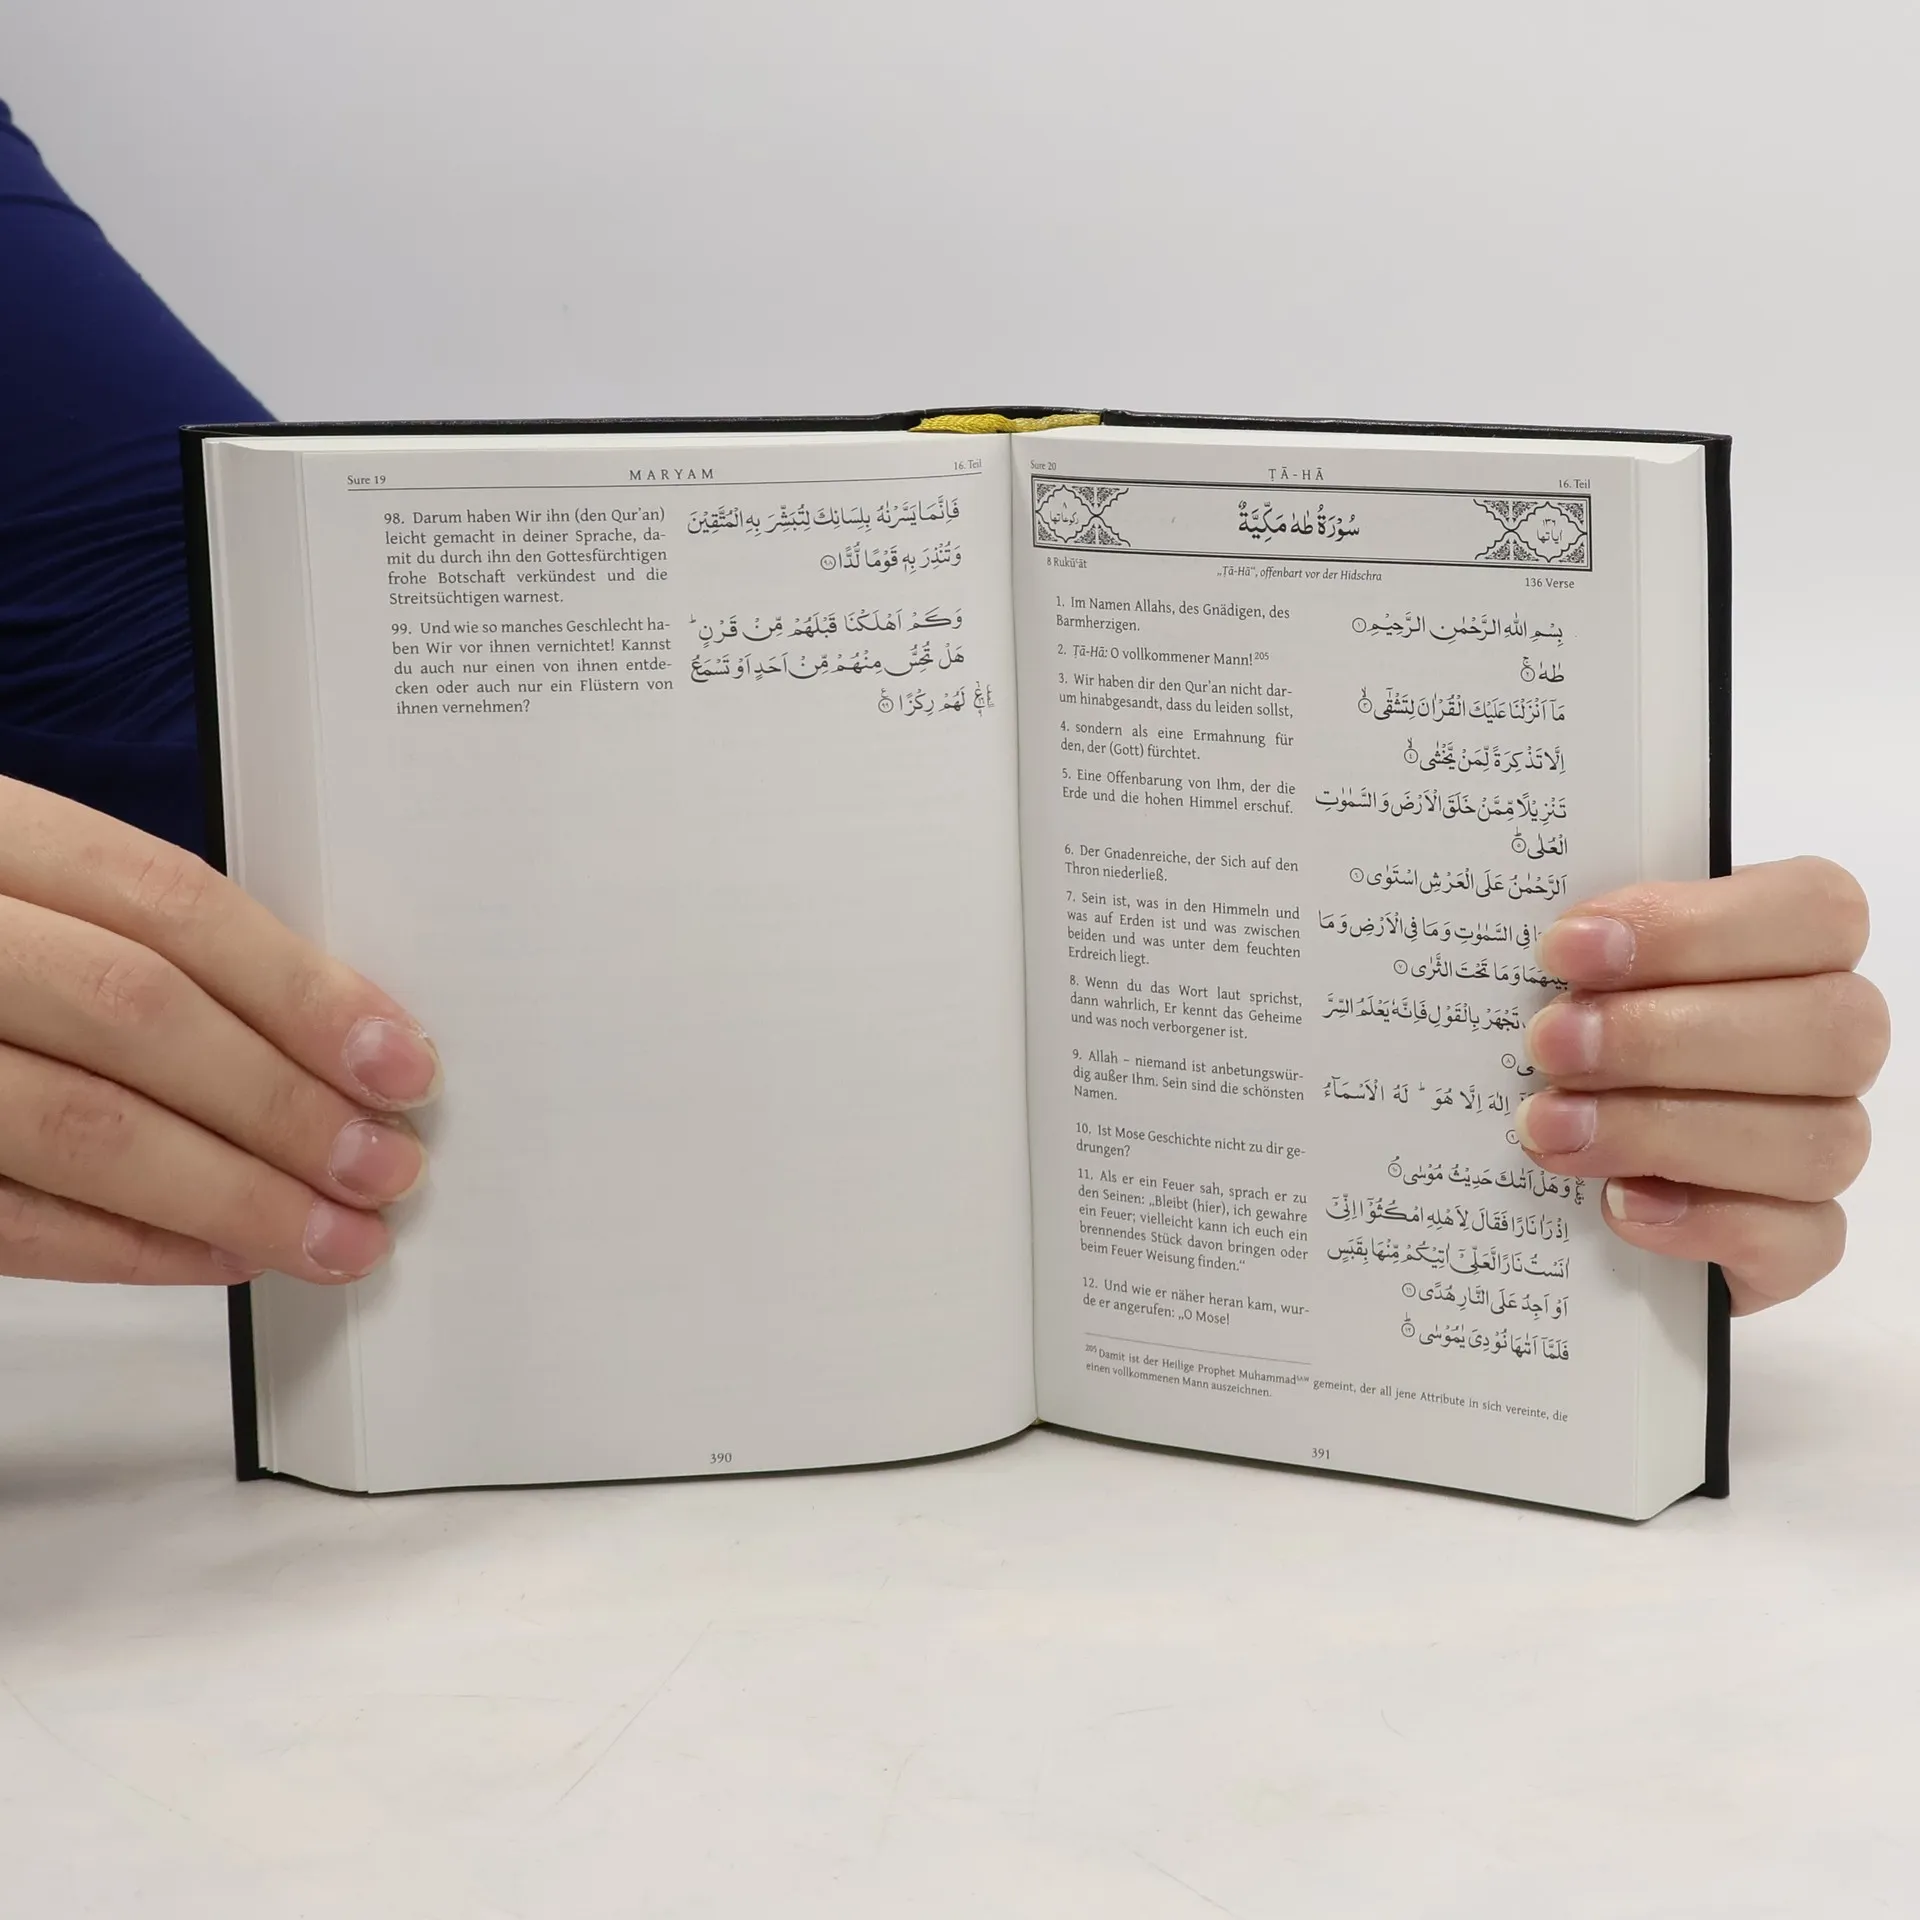 Sure 19
MARYAM
16. Teil
98. Darum haben Wir ihn (den Qur'an)
leicht gemacht in deiner Sprache, da-
mit du durch ihn den Gottesfürchtigen
frohe Botschaft verkündest und die
Streitsüchtigen warnest.
99. Und wie so manches Geschlecht ha-
ben Wir vor ihnen vernichtet! Kannst
du auch nur einen von ihnen entde-
cken oder auch nur ein Flüstern von
ihnen vernehmen?
فَاِنَّمَا يَسَّرْنٰهُ بِلِسَانِكَ لِتُبَشِّرَ بِهِ الْمُتَّقِيْنَ
وَتُنْذِرَ بِهٖ قَوْمًا لُّدًّا ۹۸
وَكَمْ اَهْلَكْنَا قَبْلَهُمْ مِّنْ قَرْنٍ ؕ
هَلْ تُحِسُّ مِنْهُمْ مِّنْ اَحَدٍ اَوْ تَسْمَعُ
لَهُمْ رِكْزًا ۹۹
390
Sure 20
ṬĀ-HĀ
16. Teil
۸ رکوعاتها
سُوْرَةُ طٰهٰ مَكِّيَّةٌ
۱۳۶ اٰیاتها
8 Rukūʿāt
„Ṭā-Hā“, offenbart vor der Hidschra
136 Verse
1. Im Namen Allahs, des Gnädigen, des
Barmherzigen.
2. Ṭā-Hā: O vollkommener Mann!205
3. Wir haben dir den Qur'an nicht dar-
um hinabgesandt, dass du leiden sollst,
4. sondern als eine Ermahnung für
den, der (Gott) fürchtet.
5. Eine Offenbarung von Ihm, der die
Erde und die hohen Himmel erschuf.
6. Der Gnadenreiche, der Sich auf den
Thron niederließ.
7. Sein ist, was in den Himmeln und
was auf Erden ist und was zwischen
beiden und was unter dem feuchten
Erdreich liegt.
8. Wenn du das Wort laut sprichst,
dann wahrlich, Er kennt das Geheime
und was noch verborgener ist.
9. Allah – niemand ist anbetungswür-
dig außer Ihm. Sein sind die schönsten
Namen.
10. Ist Mose Geschichte nicht zu dir ge-
drungen?
11. Als er ein Feuer sah, sprach er zu
den Seinen: „Bleibt (hier), ich gewahre
ein Feuer; vielleicht kann ich euch ein
brennendes Stück davon bringen oder
beim Feuer Weisung finden.“
12. Und wie er näher heran kam, wur-
de er angerufen: „O Mose!
بِسْمِ اللّٰهِ الرَّحْمٰنِ الرَّحِيْمِ ۱
طٰهٰ ۲
مَاۤ اَنْزَلْنَا عَلَيْكَ الْقُرْاٰنَ لِتَشْقٰۤى ۳
اِلَّا تَذْكِرَةً لِّمَنْ يَّخْشٰى ۴
تَنْزِيْلًا مِّمَّنْ خَلَقَ الْاَرْضَ وَالسَّمٰوٰتِ
الْعُلٰى ۵
اَلرَّحْمٰنُ عَلَى الْعَرْشِ اسْتَوٰى ۶
فِى السَّمٰوٰتِ وَمَا فِى الْاَرْضِ وَمَا
بَيْنَهُمَا وَمَا تَحْتَ الثَّرٰى ۷
تَجْهَرْ بِالْقَوْلِ فَاِنَّهٗ يَعْلَمُ السِّرَّ
۸
اِلٰهَ اِلَّا هُوَ ؕ لَهُ الْاَسْمَآءُ
۹
وَهَلْ اَتٰىكَ حَدِيْثُ مُوْسٰى ۱۰
اِذْ رَاٰ نَارًا فَقَالَ لِاَهْلِهِ امْكُثُوْۤا اِنِّيْۤ
اٰنَسْتُ نَارًا لَّعَلِّيْۤ اٰتِيْكُمْ مِّنْهَا بِقَبَسٍ
اَوْ اَجِدُ عَلَى النَّارِ هُدًى ۱۱
فَلَمَّاۤ اَتٰىهَا نُوْدِيَ يٰمُوْسٰى ۱۲
205 Damit ist der Heilige Prophet MuhammadSAW gemeint, der all jene Attribute in sich vereinte, die
einen vollkommenen Mann auszeichnen.
391